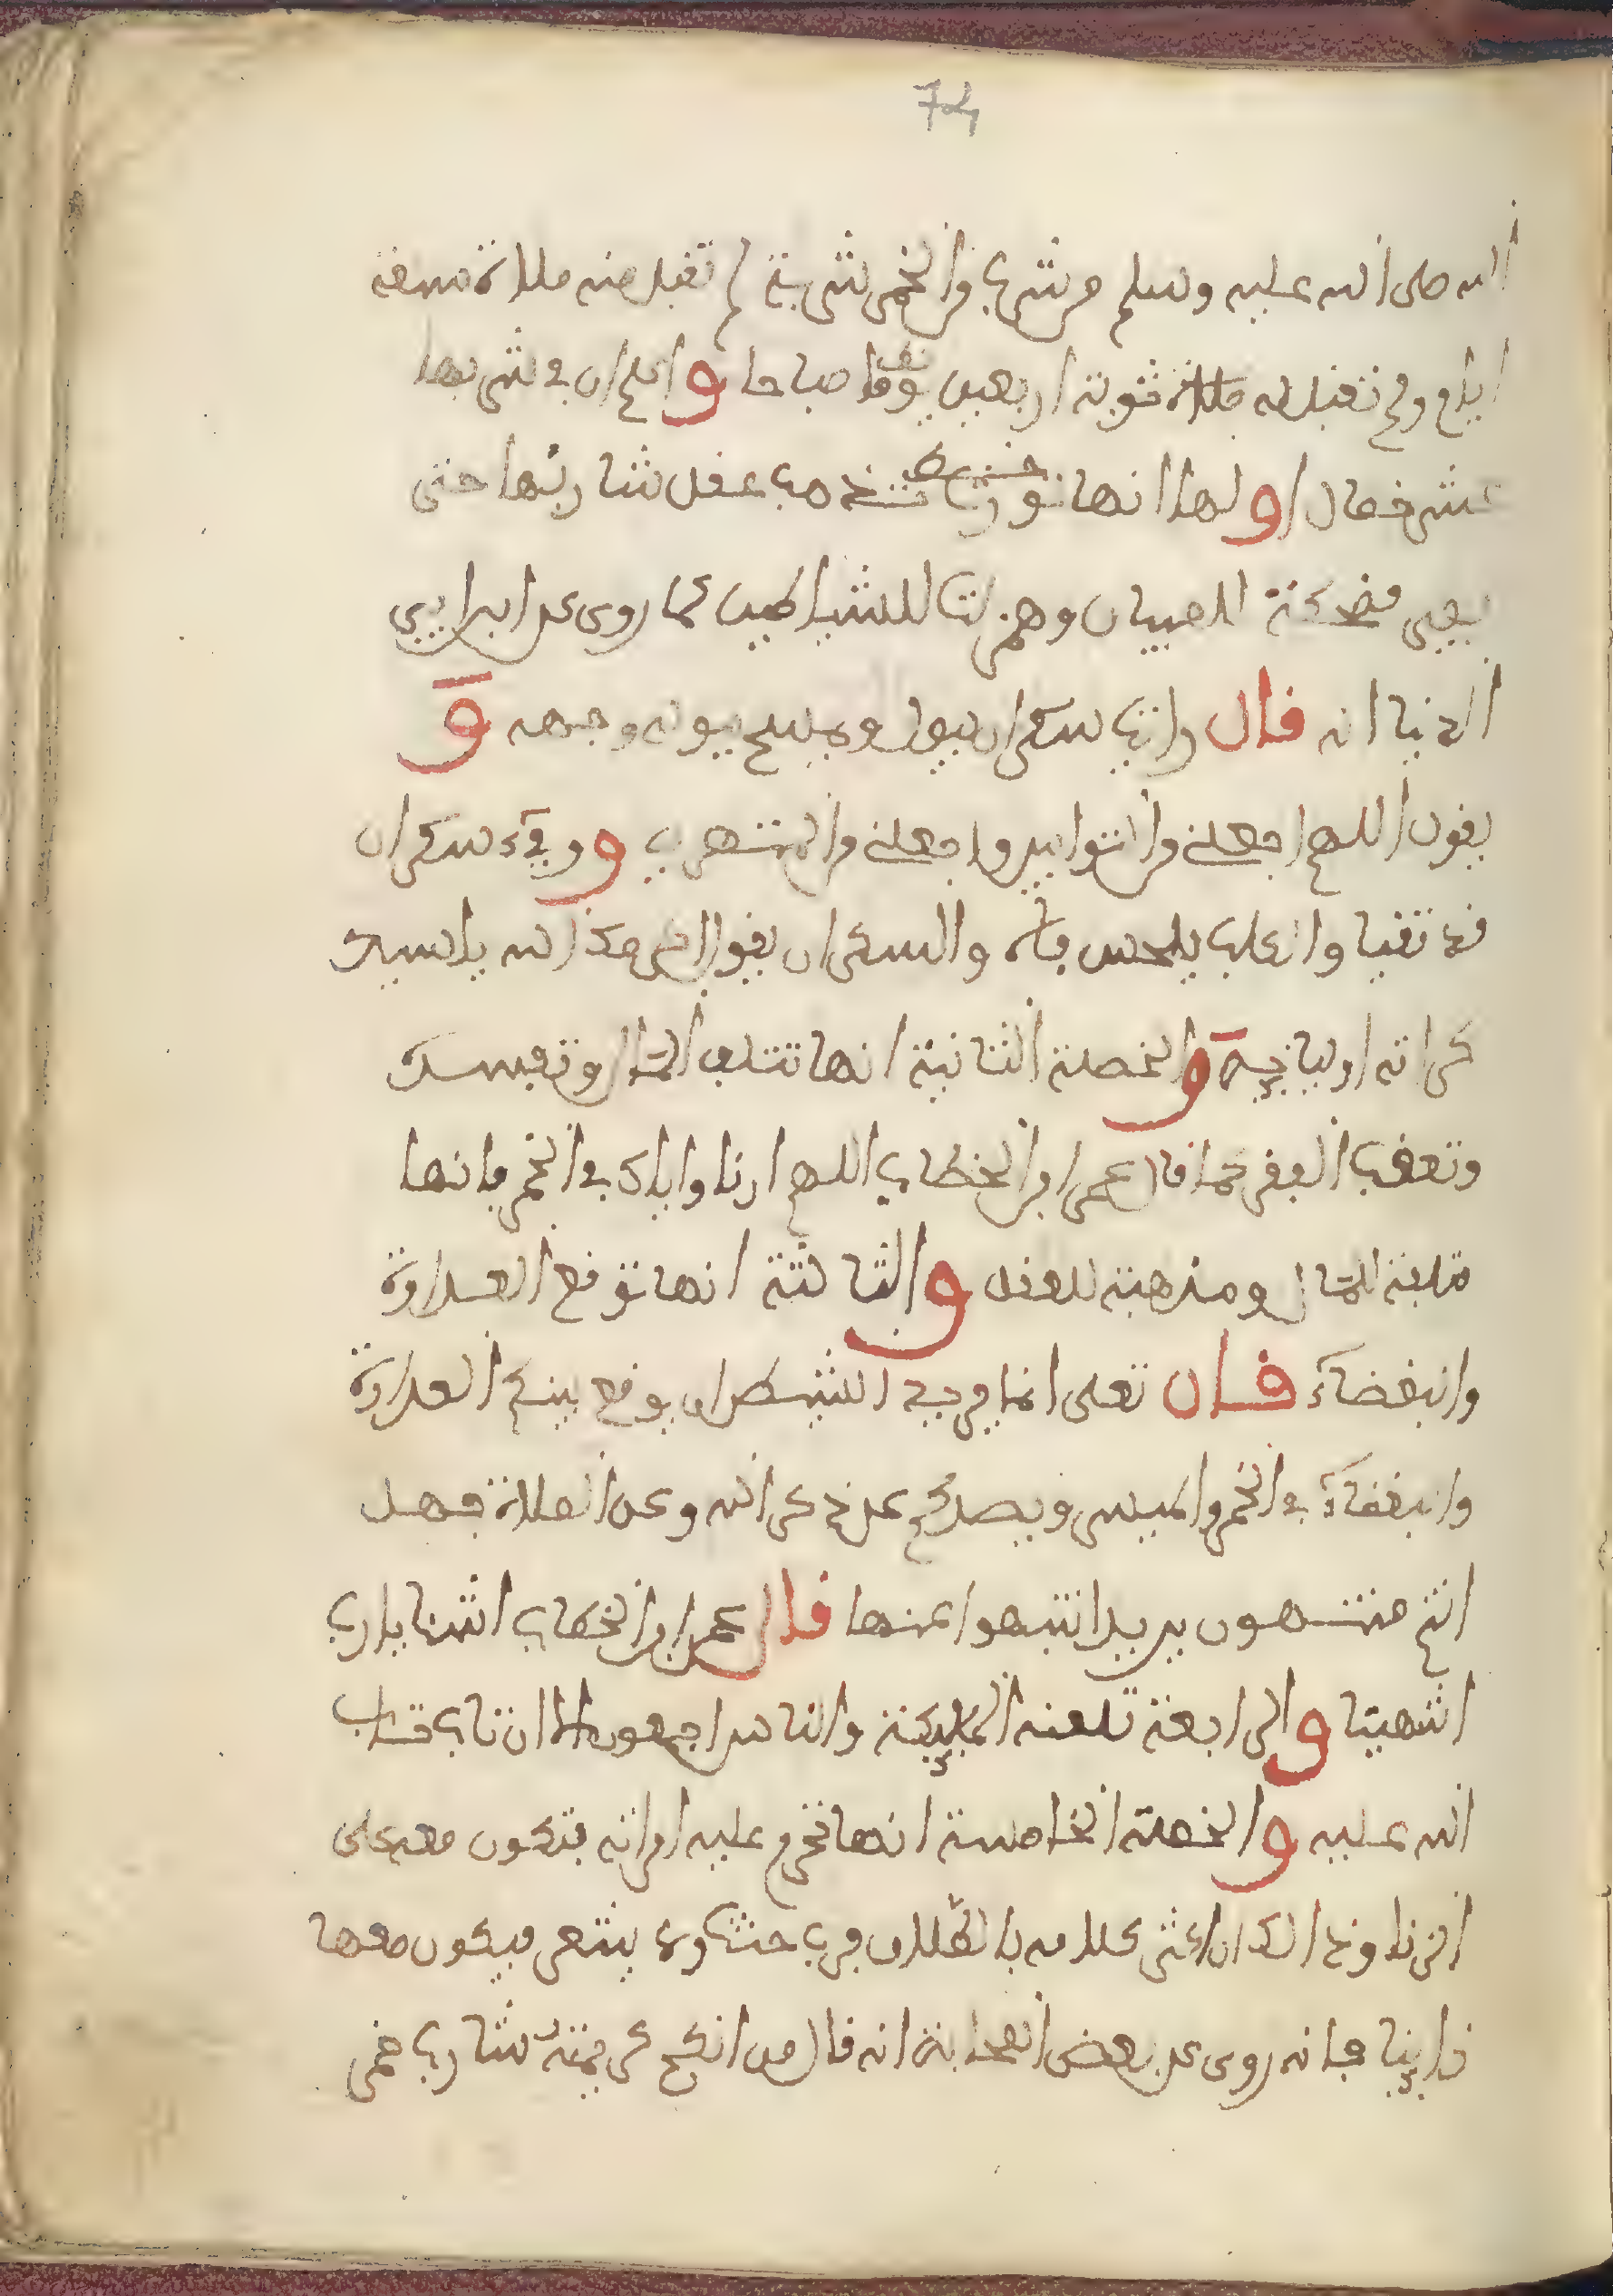 74
الله صلى الله عليه وسلم من شرب من الخمر شربة لم تقبل منه صلاة سبعة
ايام ولم تقبل له صلاة توبة اربعين يوما صباحا واعلم ان في شربها
عشر خصال اولها انها تورث تذهب عقل شاربها حتى
يصير مضحكة للصبيان وهمزلتا للشياطين كما روى عن ابن ابي
الدنيا انه قال رايت سكران يبول ويمسح ببوله وجهه و
يقول اللهم اجعلني من التوابين واجعلني من المتطهرين و وقيء سكران
قد تقيا والكلب يلحس فاه والسكران يقول اكرمك الله يا سيد
كرامة اوليائه والخصلة الثانية انها تتلف المال وتفسده
وتعقب الفقر كما قال عمر ابن الخطاب اللهم ارنا رايك في الخمر فانها
متلفة للمال ومذهبة للعقل والثالثة انها توقع العداوة
والبغضاء قال تعلى انما يريد الشيطان يوقع بينكم العداوة
والبغضاء في الخمر والميسر ويصدكم عن ذكر الله وعن الصلاة فهل
انتم منتهون يريد انتهوا عنها قال عمر ابن الخطاب انتهينا يا رب
انتهينا والرابعة تلعنه الملايكة والناس اجمعون الا ان تاب تاب
الله عليه والخصلة الخامسة انها تحرم عليه امراته فتكون معه على
الزنا وذا لك ان اكثر كلامه بالطلاق فربما حنث ولم يشعر فيكون معها
زانيا فانه روى عن بعض الصحابة انه قال من انكح كريمته شارب خمر